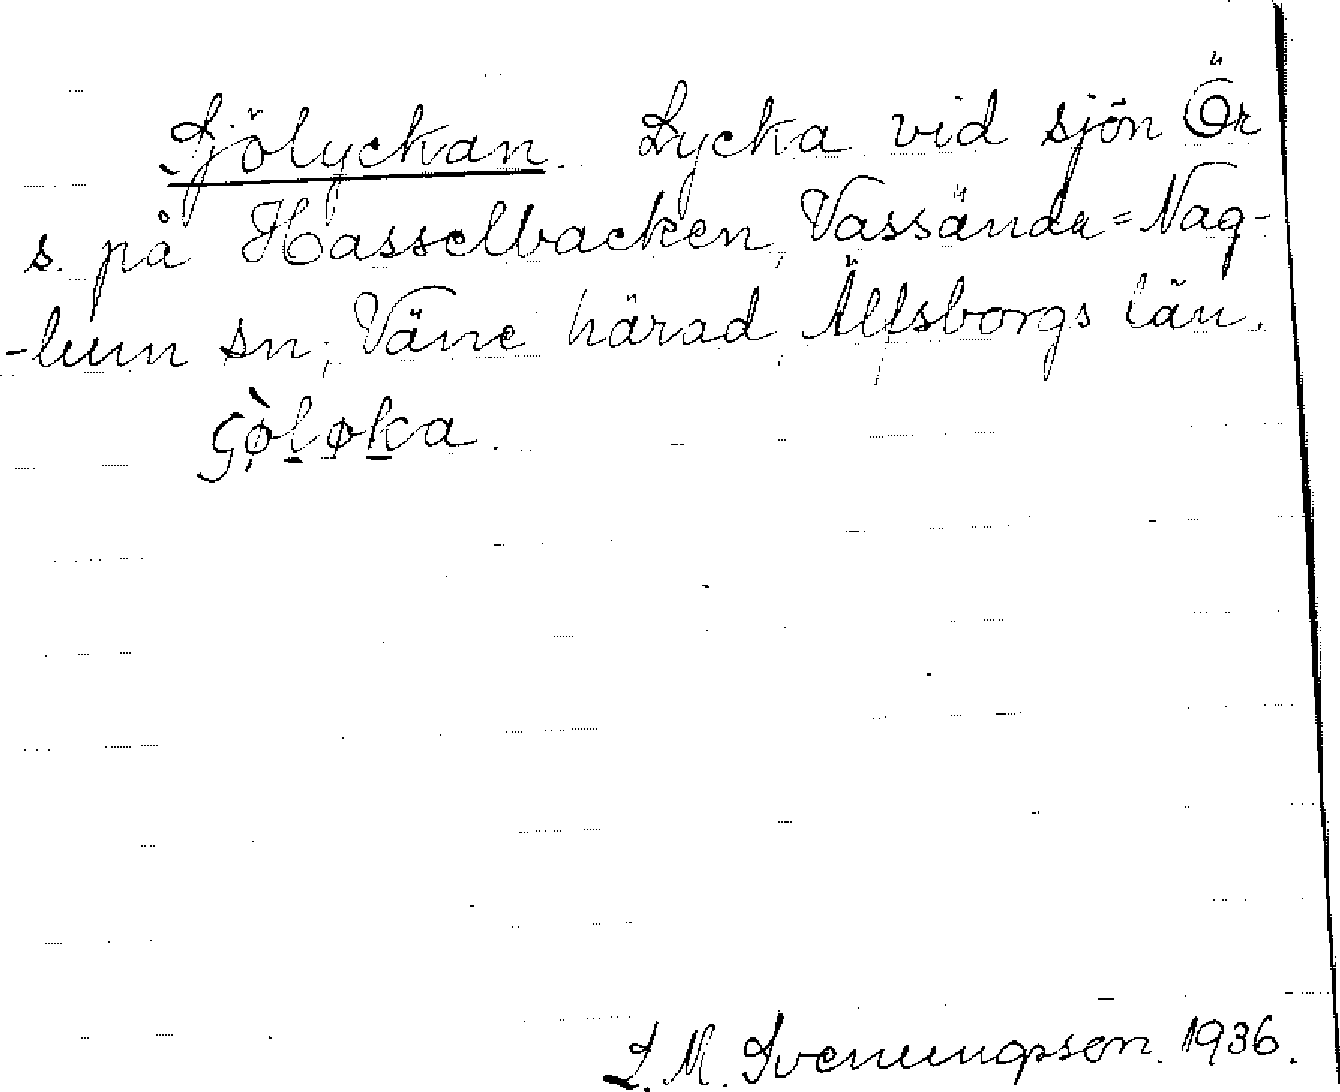 Sjölyckan. Lycka vid sjön Ör
s. på Hasselbacken, Vassända=Nag-
-lum sn, Väne härad, Älfsborgs län.
S. M. Svenungsson. 1936.